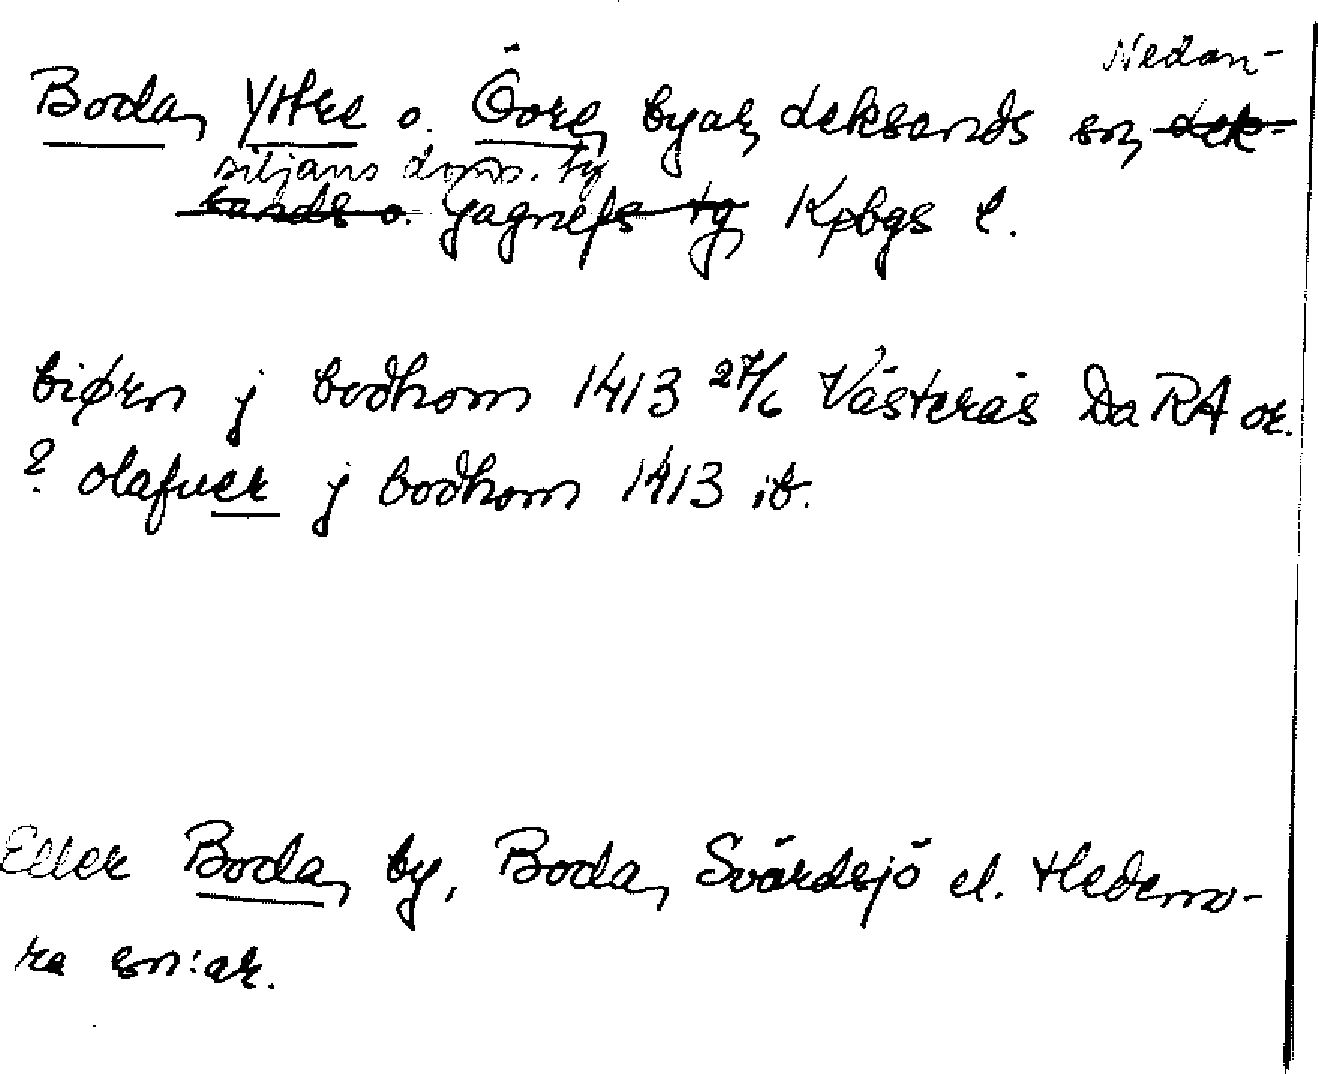 Nedan-
Boda, Yttre o. Övre, byar, Leksands sn, Lek-
siljans doms. tg
sands o. Gagnefs tg, Kpbgs l.
biørn j bodhom 1413 27/6 Västerås Da RA or.
? olafuer j bodhom 1413 ib.
Eller Boda, by, Boda, Svärdsjö el. Hedemo-
ra sn:ar.